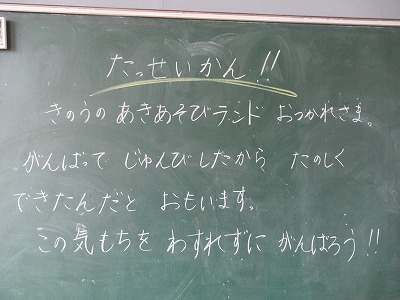 たっせいかん!!
きのうの あきあそびランド おつかれさま。
がんばって じゅんびしたから たのしく
できたんだと おもいます。
この気もちを わすれずに がんばろう!!